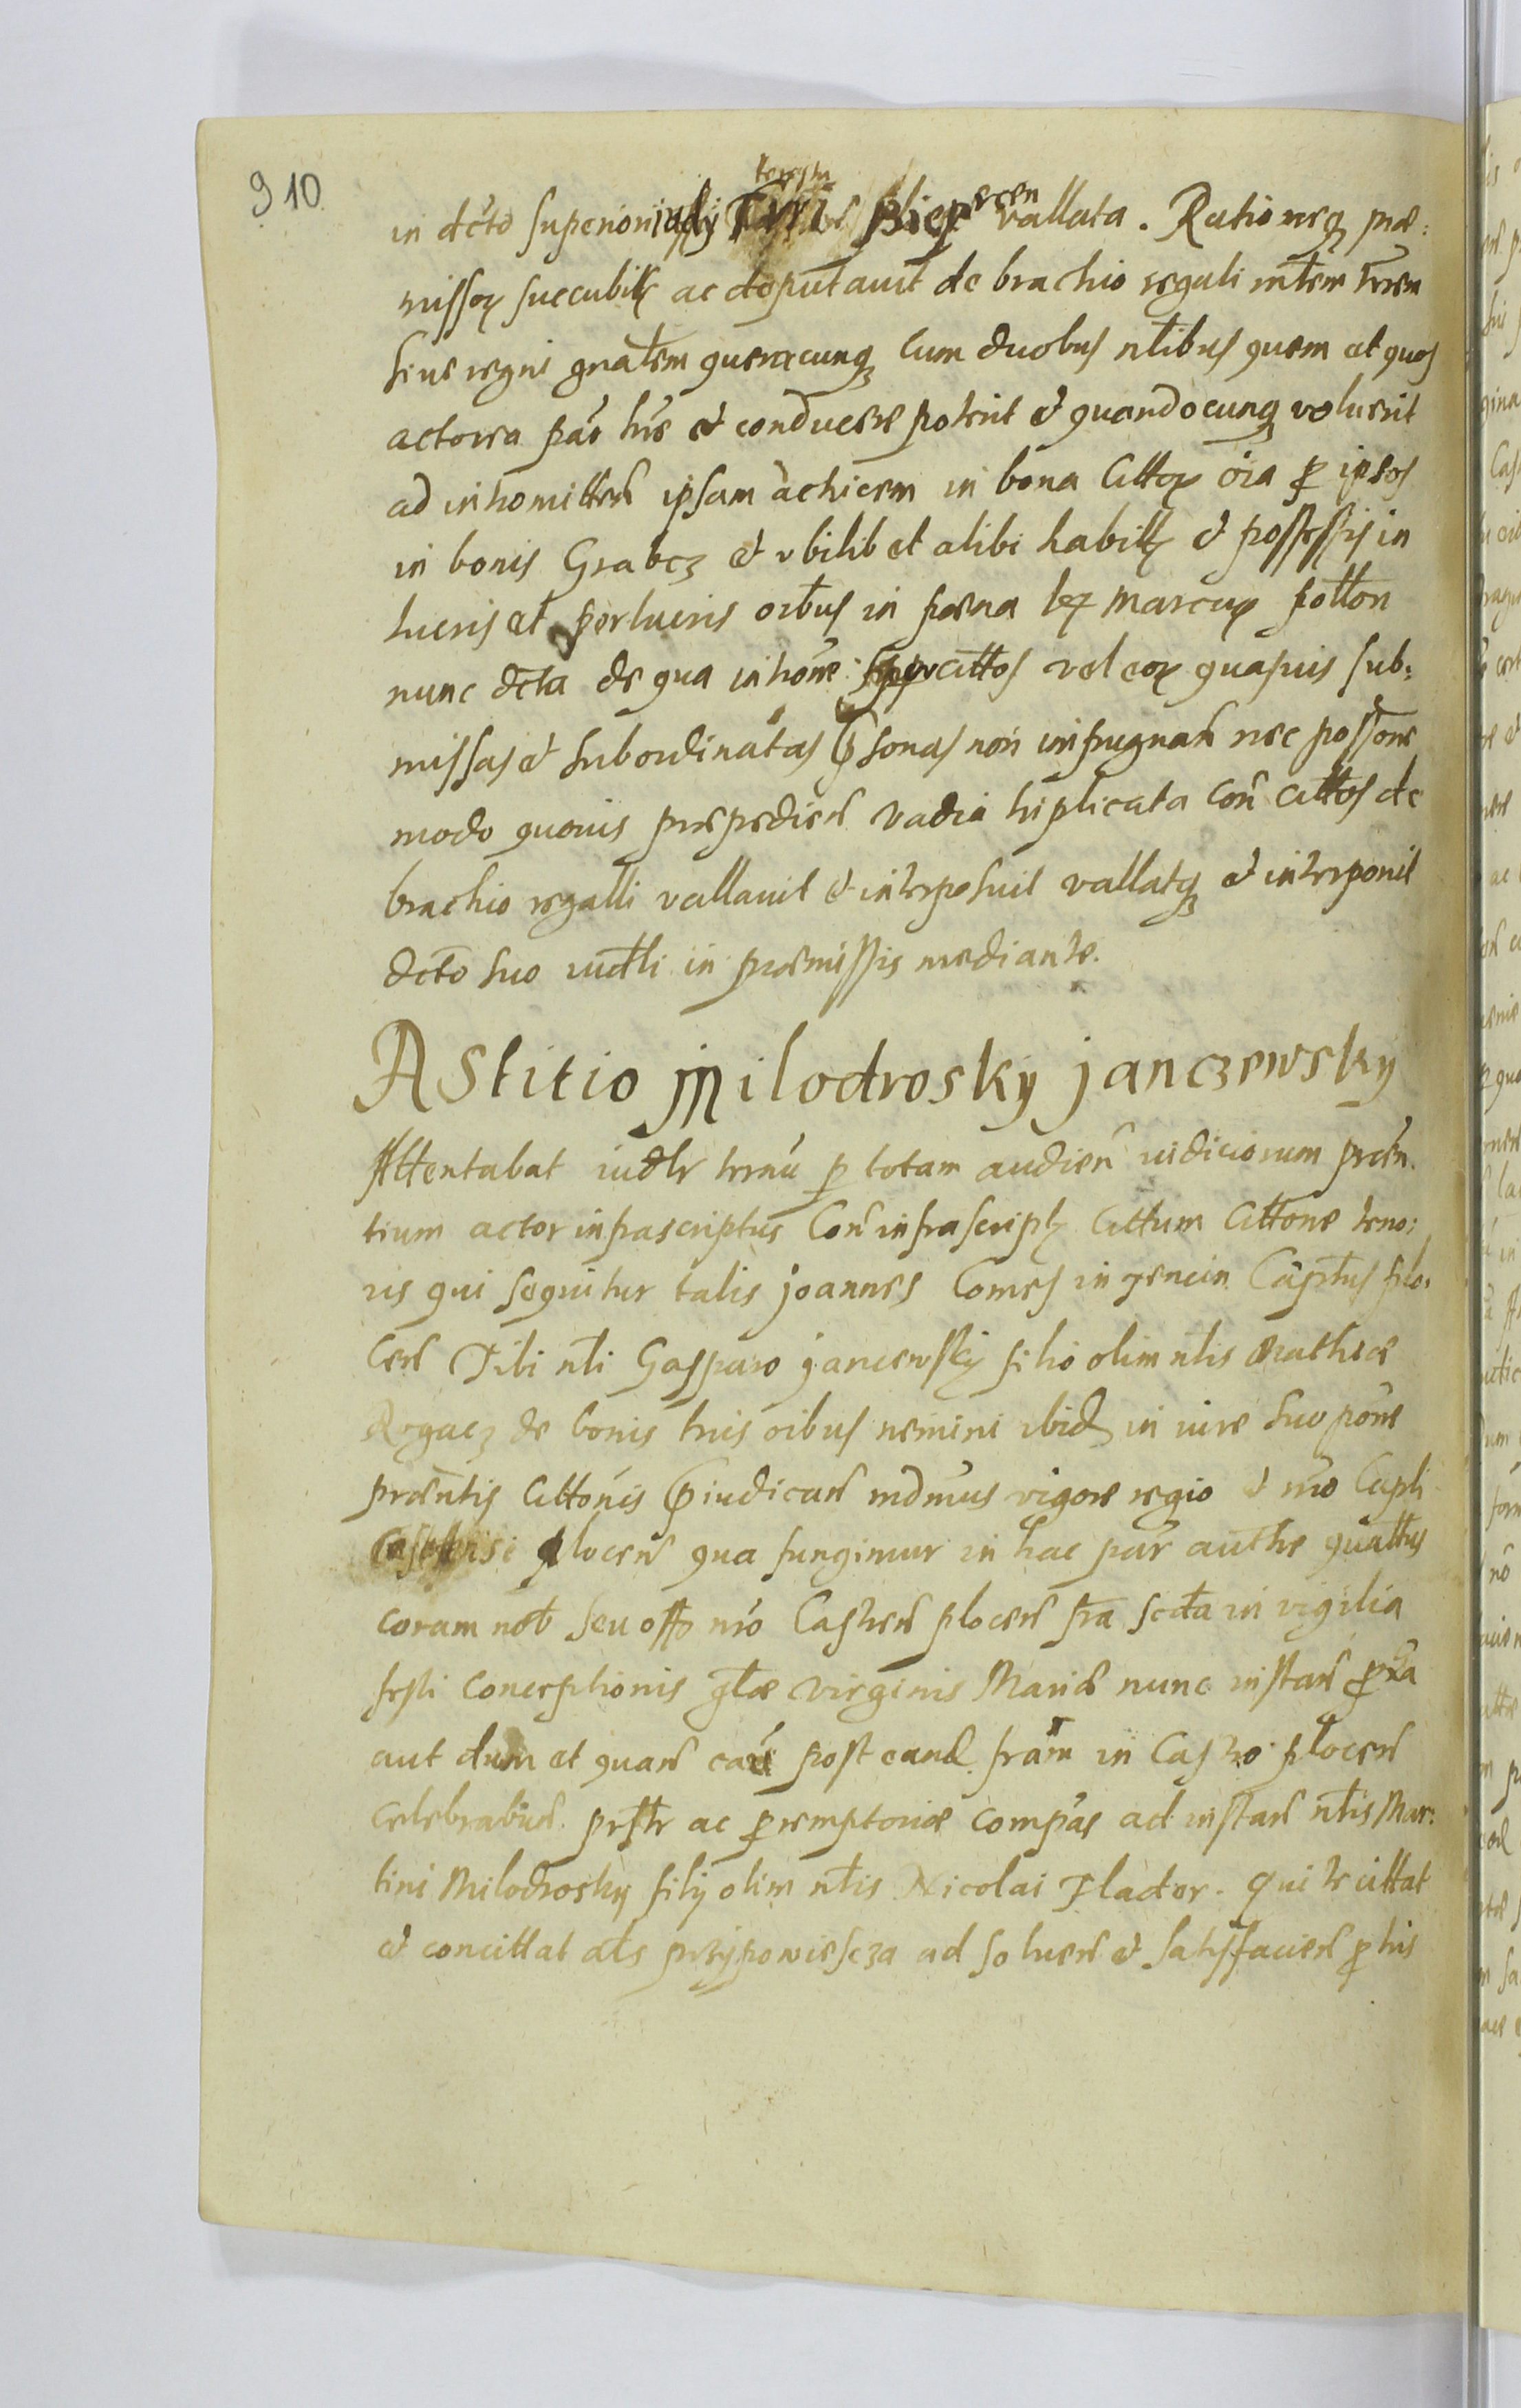 910
in dcto superiori vallata. Rationeq prae:
missoq succubit ac deputavit de brachio regali mtem trrem
sive regni gnatem quemcunq cum duobus ntlibus quem et quos
actorea pars hre et conducere poterit et quandocunq voluerit
ad intromitten ipsam actricem in bona Cittoq oia p ipsos
in bonis Grabcz et ubilibet alibi habit et possessis in
lucris et perlucris oibus in paena marcuq potton
nunc dcta de qua introne cittos vel eoq quasuis sub:
missas et subordinatas psonas non inpugnan nec possone
modo quovis praepedien vadia triplicata con cittos de
brachio regalli vallavit et interposuit vallatq et interponit
dcto suo iudtli in praemissis mediante.
Astitio Milodrosky Janczewsky
Attentabat iudlr trnu p totam audien iudiciorum praen
tium actor infrascriptus Con infrascript Cittum Cittone teno:
ris qui sequitur talis Joannes Comes in Tencin Capitus plo:
cen Tibi ntli Gasparo Jancewsky filio olim ntlis Mathiae
Rogacz de bonis tuis oibus nemini ibid in iure suo pone
praentis Cittonis piudican mdmus vigore regio et nro Capli
plocen qua fungimur in hac par authe quattus
coram nob seu offo nro Castren plocen fra scda in vigilia
festi Conceptionis gtae Virginis Mariae nunc instan pxa
aut dum et quan post eand fram in Castro plocen
celebrabun. prstr ac peremptoriae compas ad instan ntlis Mar:
tini Milodrosky filij olim ntlis Nicolai Tlador. Qui te cittat
et concittat als przypowiescza ad soluen et satisfacien p tuis